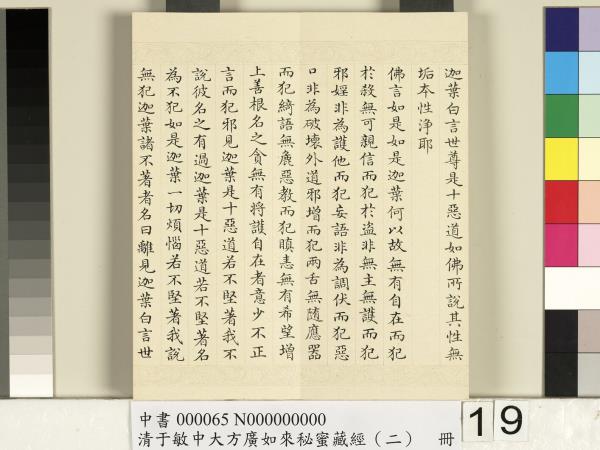 迦葉白言世尊是十惡道如佛所說其性無
垢本性淨耶
佛言如是如是迦葉何以故無有自在而犯
於殺無可親信而犯於盜非無主無護而犯
邪婬非為護他而犯妄語非為調伏而犯惡
口非為破壞外道邪增而犯兩舌無隨應器
而犯綺語無麁惡教而犯瞋恚無有希望增
上善根名之貪無有將護自在者意少不正
言而犯邪見迦葉是十惡道若不堅著我不
說彼名之有過迦葉是十惡道若不堅著名
為不犯如是迦葉一切煩惱若不堅著我說
無犯迦葉諸不著者名曰離見迦葉白言世
中書 000065 N000000000
清于敏中大方廣如來秘蜜藏經（二） 冊
19